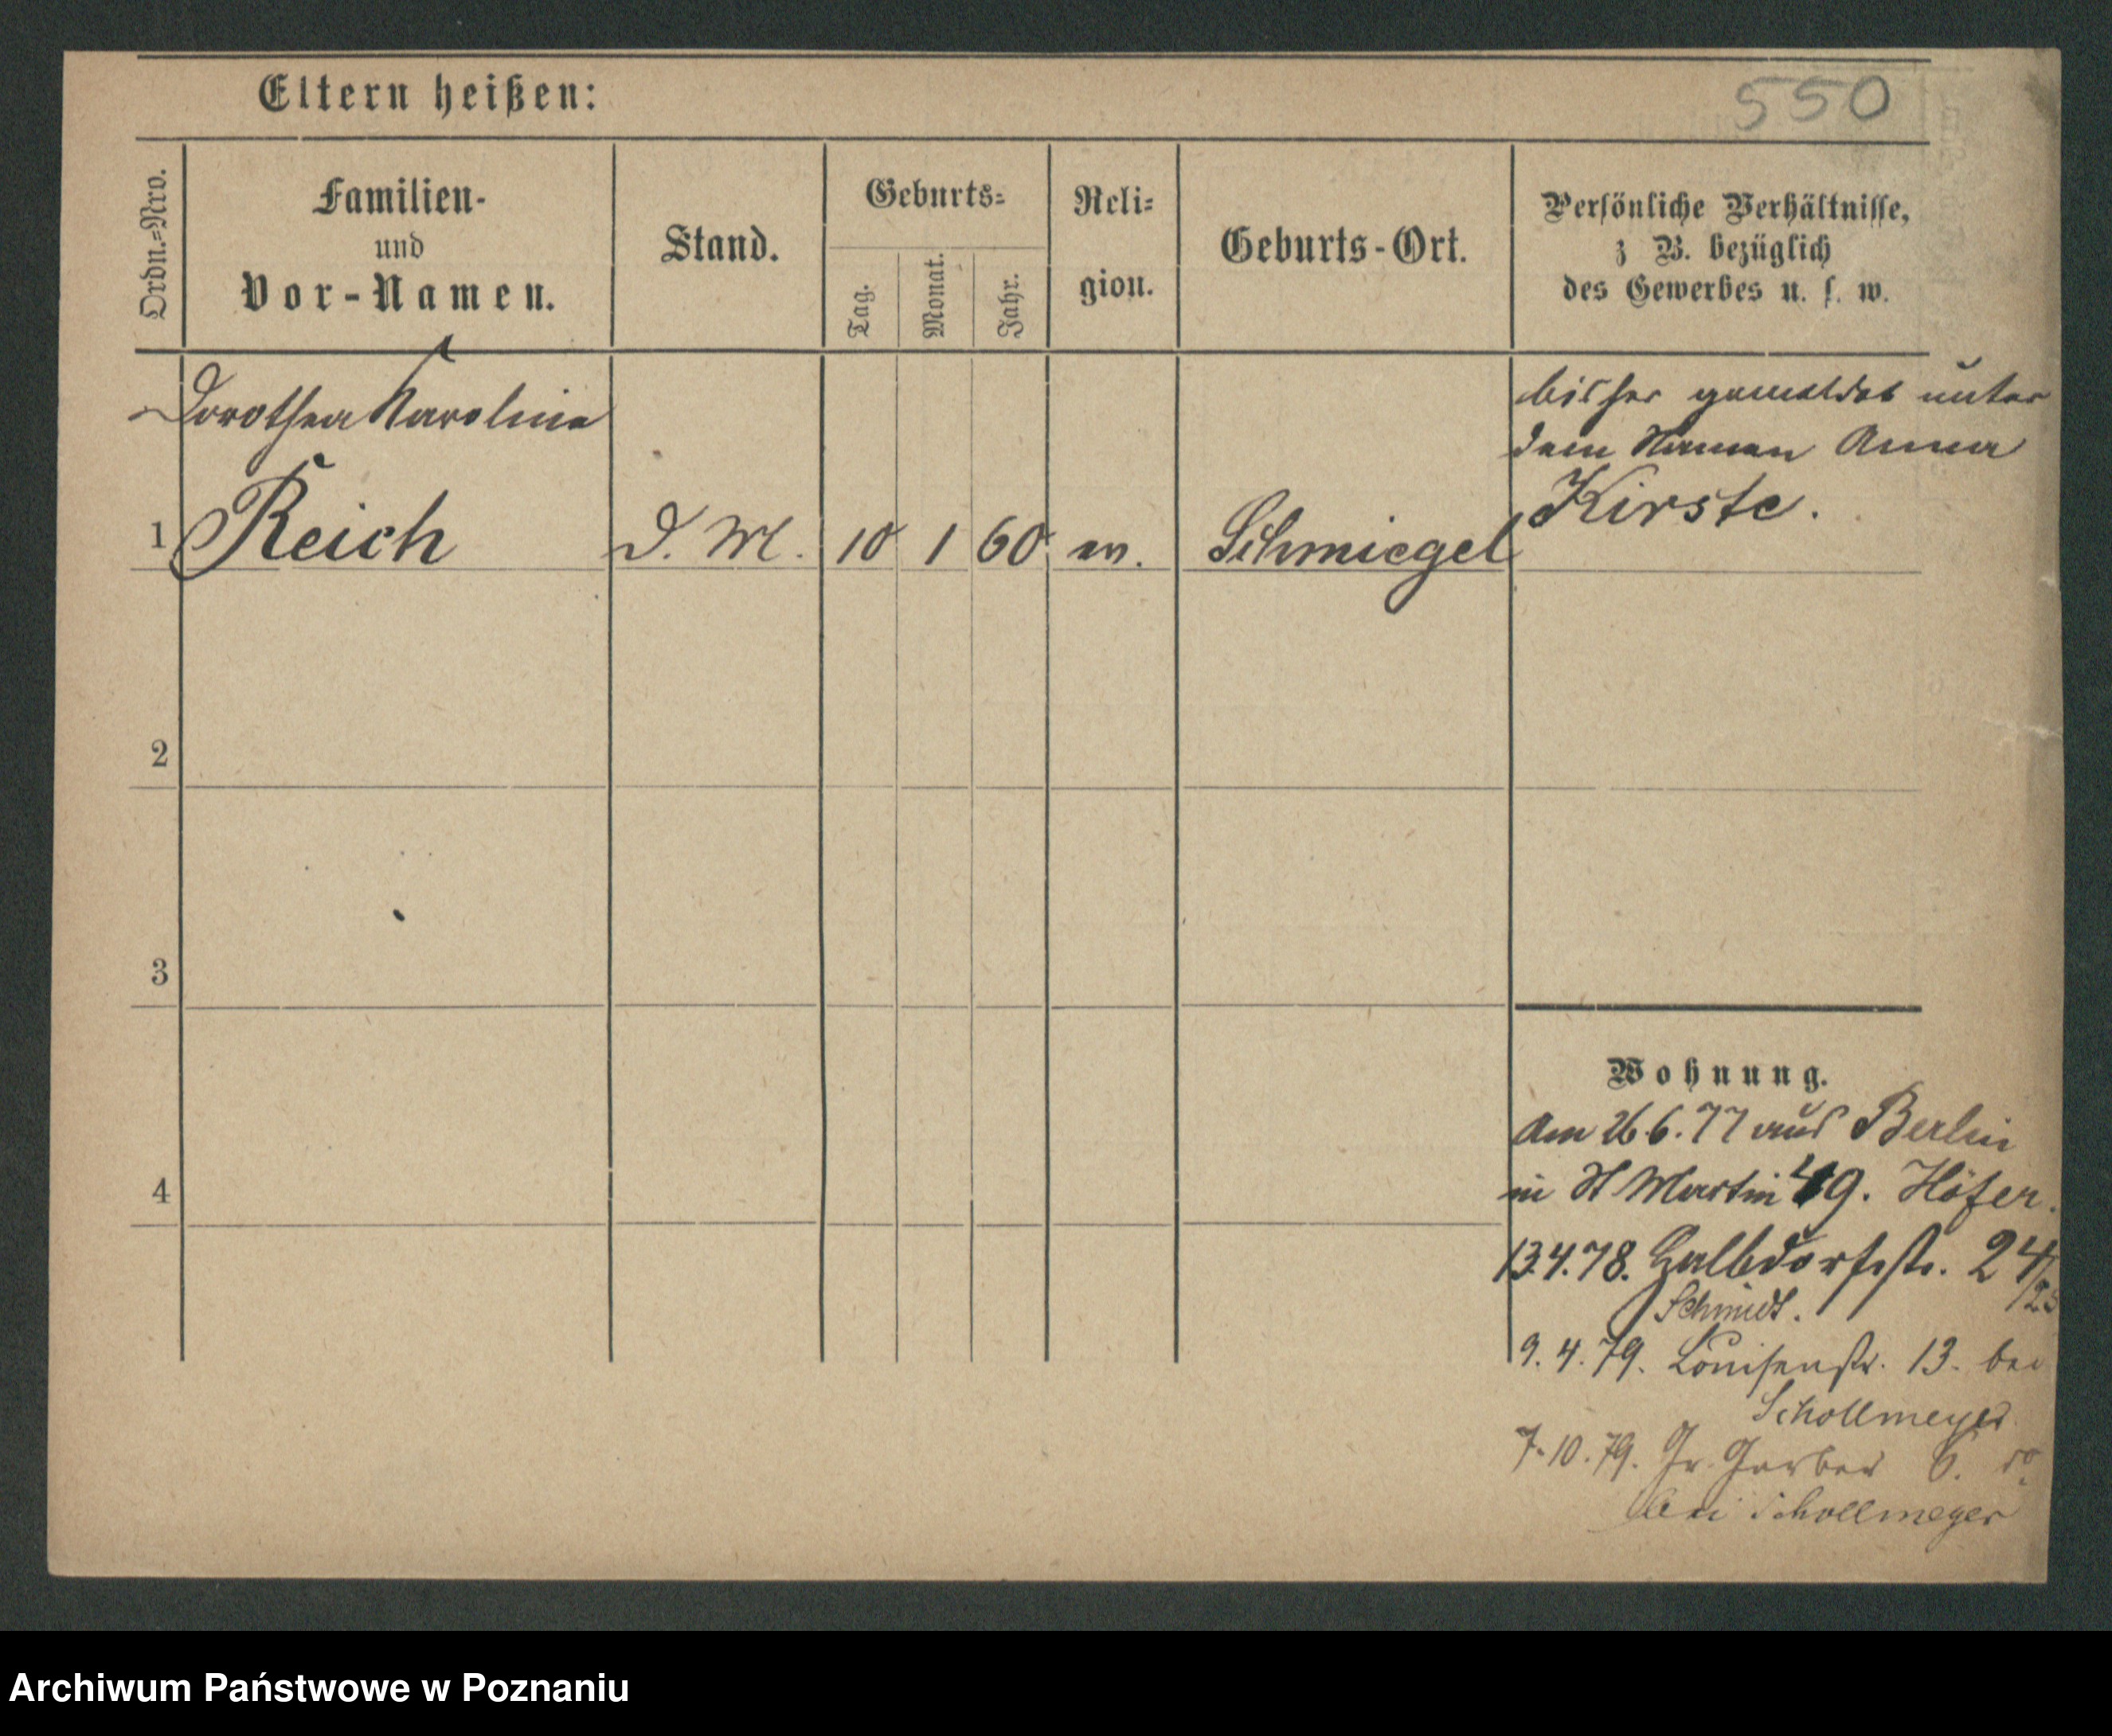 Eltern heißen:
550
Ordn.=Nro.
Familien-
und
Vor-Namen.
Stand.
Geburts=
Tag.
Monat.
Jahr.
Reli=
gion.
Geburts-Ort.
Persönliche Verhältnisse,
z B. bezüglich
des Gewerbes u. s. w.
Dorothea Karoline
bisher gemeldet unter
dem Namen Anna
Kirste.
1 Reich D. M. 10 1 60 ev. Schmiegel
2
3
4
Wohnung.
Am 26.6.77 aus Berlin
in St Martin 49. Höfer.
13.4.78. Halbdorfstr. 24/25
Schmidt.
9.4.79. Louisenstr. 13. bei
Schollmeyer
7.10.79. Gr. Gerber 6.
bei Schollmeyer
Archiwum Państwowe w Poznaniu